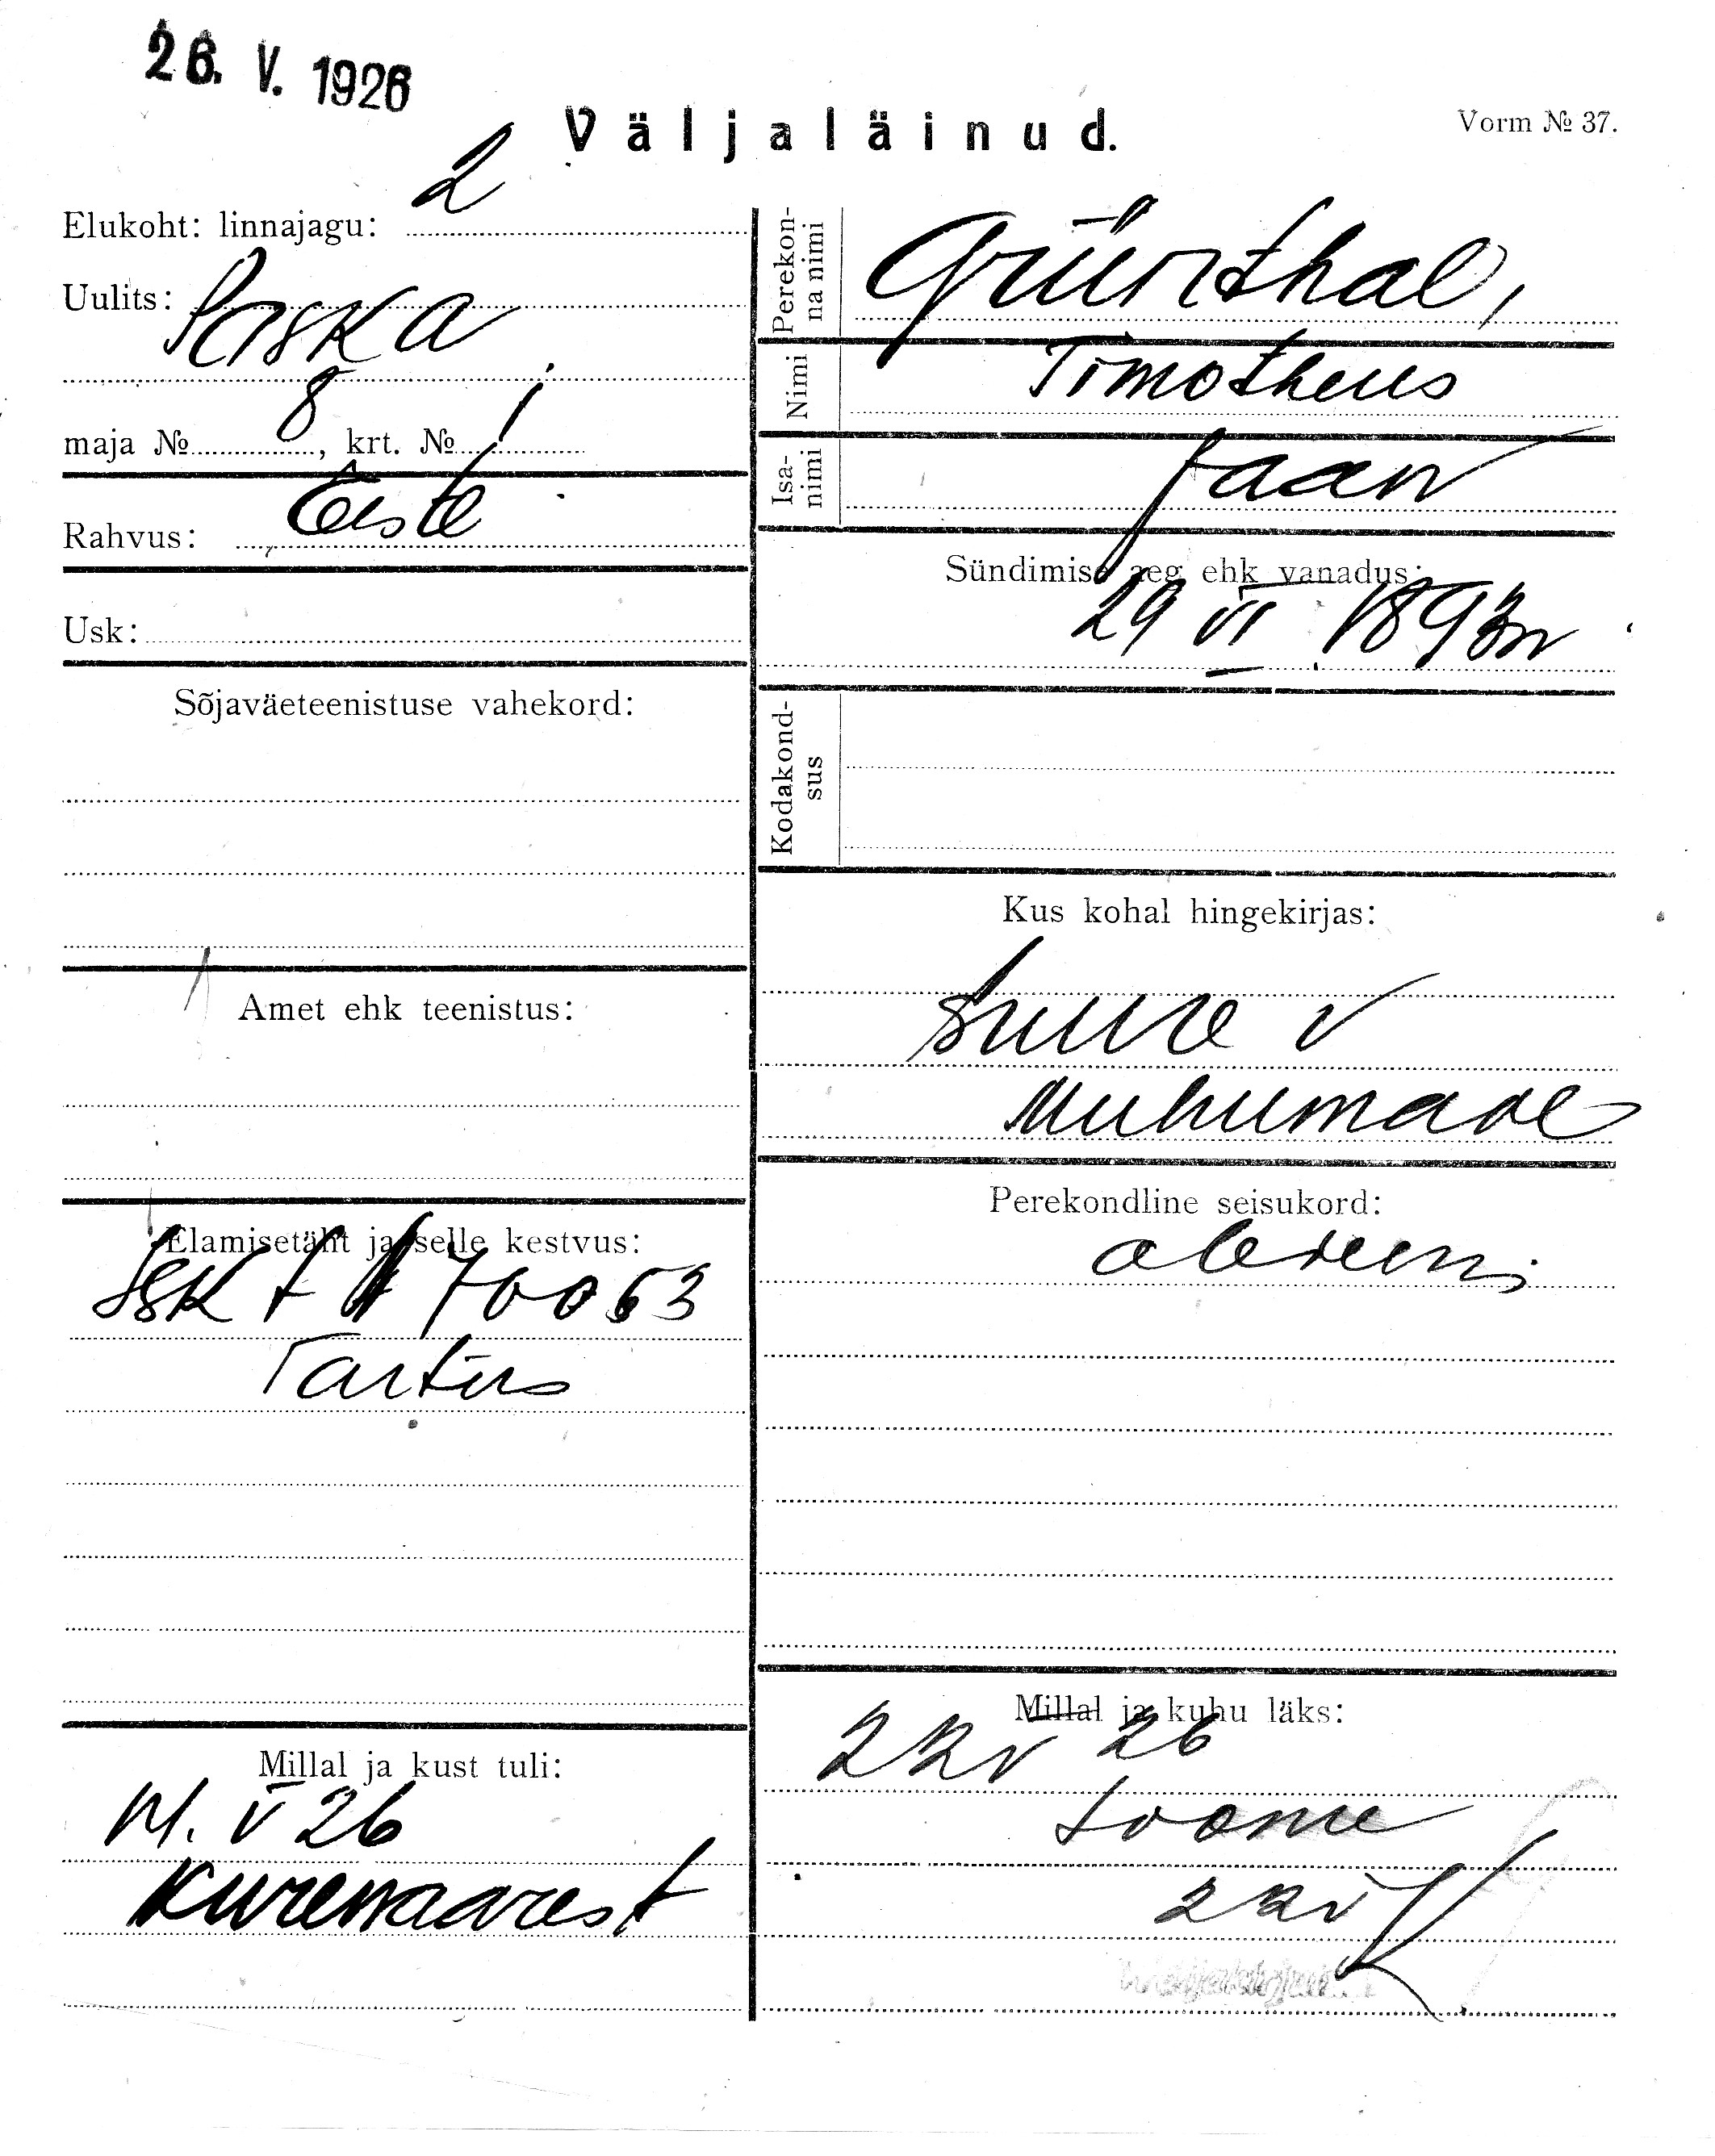 26. V. 1926
Väljaläinud.
Vorm № 37.
Elukoht: linnajagu: 2
Uulits: Poska
maja № 8, krt. № 1
Rahvus: Eesti
Usk:
Sõjaväeteenistuse vahekord:
Amet ehk teenistus:
Elamisetäht ja selle kestvus:
70063
Tartus
Millal ja kust tuli:
V 26
Kuremaarest
Perekonna nimi
Grünthal,
Nimi
Timotheus
Isanimi
Jaan
Sündimise aeg ehk vanadus:
29 VI 1893
Kodakondsus
Kus kohal hingekirjas:
Suure v
Muhumaal
Perekondline seisukord:
Millal ja kuhu läks:
26
Soome